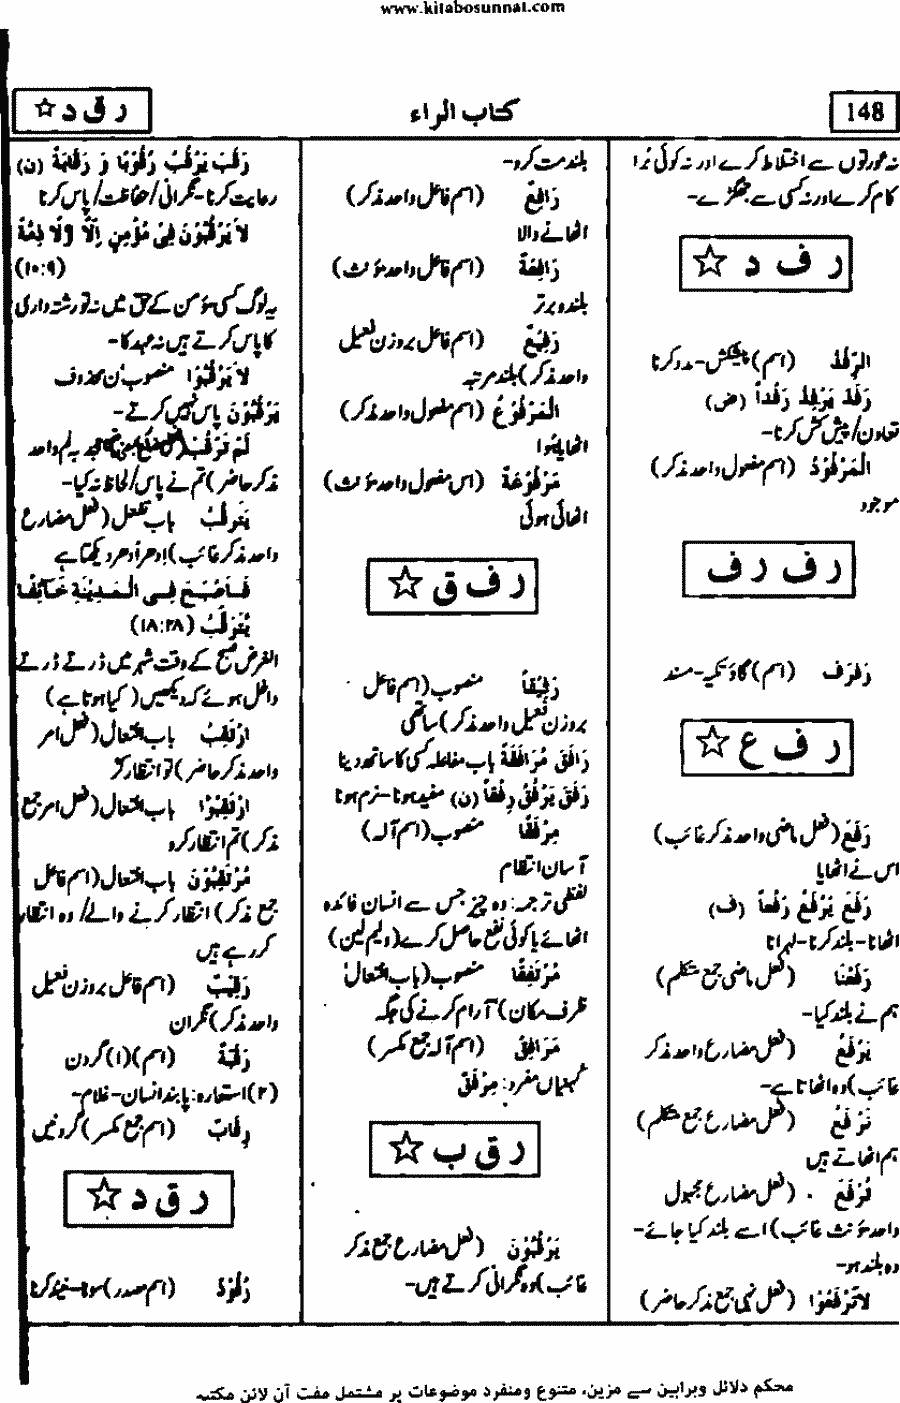 www.kitabosunnat.com
148
کتاب الراء
ر ق د ☆
نہ عورتوں سے اختلاط کرے اور نہ کوئی بُرا
کام کرے اور نہ کسی سے جھگڑے-
ر ف د ☆
الرِّفْدُ (اسم) پیشکش-مدد کرنا
رَفَدَ یَرْفِدُ رَفْداً (ض)
تعاون/پیش کش کرنا-
الْمَرْفُوْدُ (اسم مفعول واحد مذکر)
موجود
ر ف ر ف
رَفْرَف (اسم) گاؤ تکیہ-مسند
ر ف ع ☆
رَفَعَ (فعل ماضی واحد مذکر غائب)
اس نے اٹھایا
رَفَعَ یَرْفَعُ رَفْعاً (ف)
اٹھانا-بلند کرنا-لہرانا
رَفَعْنَا (فعل ماضی جمع متکلم)
ہم نے بلند کیا-
یَرْفَعُ (فعل مضارع واحد مذکر
غائب) وہ اٹھاتا ہے-
نَرْفَعُ (فعل مضارع جمع متکلم)
ہم اٹھاتے ہیں
تُرْفَعَ (فعل مضارع مجہول
واحد مؤنث غائب) اسے بلند کیا جائے-
وہ بلند ہو-
لَا تَرْفَعُوْا (فعل نہی جمع مذکر حاضر)
بلند مت کرو-
رَافِعٌ (اسم فاعل واحد مذکر)
اٹھانے والا
رَافِعَةٌ (اسم فاعل واحد مؤنث)
بلند و برتر
رَفِیْعٌ (اسم فاعل بروزن فعیل
واحد مذکر) بلند مرتبہ
الْمَرْفُوْعُ (اسم مفعول واحد مذکر)
اٹھایا ہوا
مَرْفُوْعَةٌ (اس مفعول واحد مؤنث)
اٹھائی ہوئی
ر ف ق ☆
رَفِیْقاً منصوب (اسم فاعل
بروزن فعیل واحد مذکر) ساتھی
رَافَقَ مُرَافَقَةً باب مفاعلہ کسی کا ساتھ دینا
رَفَقَ یَرْفُقُ رِفْقاً (ن) مفید ہونا-نرم ہونا
مِرْفَقًا منصوب (اسم آلہ)
آسان انتظام
لفظی ترجمہ: وہ چیز جس سے انسان فائدہ
اٹھائے یا کوئی نفع حاصل کرے (ولیم لین)
مُرْتَفَقًا منصوب (باب افتعال
ظرف مکان) آرام کرنے کی جگہ
مَرَافِقُ (اسم آلہ جمع مکسر)
کہنیاں مفرد: مِرْفَقٌ
ر ق ب ☆
یَرْقُبُوْنَ (فعل مضارع جمع مذکر
غائب) وہ نگرانی کرتے ہیں-
رَقَبَ یَرْقُبُ رُقُوْبًا وَ رَقَابَةً (ن)
رعایت کرنا-نگرانی/حفاظت/پاس کرنا
لاَ یَرْقُبُوْنَ فِیْ مُؤْمِنٍ اِلاًّ وَّلَا ذِمَّةً
(۱۰:۹)
یہ لوگ کسی مؤمن کے حق میں نہ تو رشتہ داری
کا پاس کرتے ہیں نہ عہد کا-
لاَ یَرْقُبُوْا منصوب ن محذوف
یَرْقُبُوْنَ پاس نہیں کرتے-
لَمْ تَرْقُبْ بہ لم واحد
مذکر حاضر) تم نے پاس/لحاظ نہ کیا-
یَتَرَقَّبُ باب تفعل (فعل مضارع
واحد مذکر غائب) ادھر اُدھر دیکھتا ہے
فَاَصْبَحَ فِی الْمَدِیْنَةِ خَآئِفًا
یَّتَرَقَّبُ (۱۸:۲۸)
الغرض صبح کے وقت شہر میں ڈرتے ڈرتے
داخل ہوئے کہ دیکھیں (کیا ہوتا ہے)
ارْتَقِبْ باب افتعال (فعل امر
واحد مذکر حاضر) تو انتظار کر
ارْتَقِبُوْا باب افتعال (فعل امر جمع
مذکر) تم انتظار کرو
مُرْتَقِبُوْنَ باب افتعال (اسم فاعل
جمع مذکر) انتظار کرنے والے/ وہ انتظار
کر رہے ہیں
رَقِیْبٌ (اسم فاعل بروزن فعیل
واحد مذکر) نگران
رَقَبَةٌ (اسم) (۱) گردن
(۲) استعارہ: پابند انسان-غلام-
رِقَابٌ (اسم جمع مکسر) گردنیں
ر ق د ☆
رُقُوْدٌ (اسم مصدر) سونا-نیند کرنا
محکم دلائل وبراہین سے مزین، متنوع ومنفرد موضوعات پر مشتمل مفت آن لائن مکتبہ